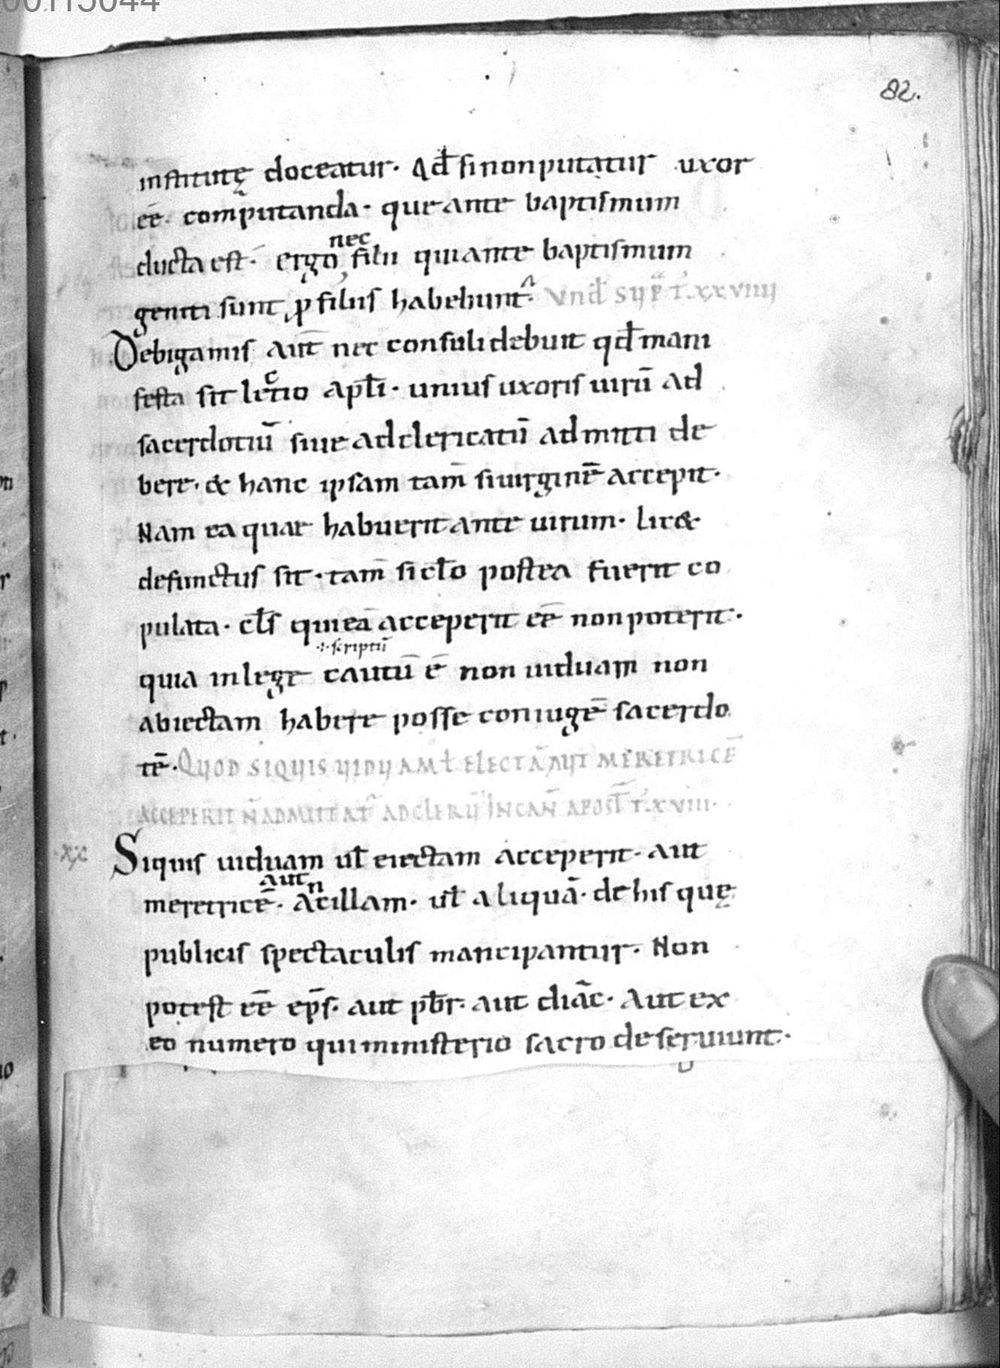 82.
institutę doceatur· Qd̄ si non putatur uxor
eē· computanda· que ante baptismum
ducta est· ergo nec filii qui ante baptismum
geniti sunt p̱ filiis habebunt·
Debigamis aut̄ nec consuli debuit qd̄ mani
festa sit lectio apl̄i· unius uxoris uirū ad
sacerdotiū siue ad clericatū admitti de
bere· & hanc ipsam tam̄ si uirginē accepit·
Nam ea quae habuerit ante uirum· lic&
defunctus sit· tam̄ si cl̄o postea fuerit co
pulata· cl̄s qui eā acceperit eē non poterit·
quia in lege scriptū cautū ē non uiduam non
abiectam habere posse coniugē sacerdo
tē· QUOD SIQUIS UIDUAM ł EIECTĀ AUT MERETRICĒ
ACCEPERIT N̄ ADMITTAT̄ AD CLERŪ IN CAN̄ APOST̄ T̄.XVIII·
Siquis uiduam ul̄ eiectam acceperit· aut
meretricē· aut ancillam· ul̄ aliquā· de his quę
publicis spectaculis mancipantur· Non
potest eē ep̄s· aut pb̄r· aut diāc· Aut ex
eo numero qui ministerio sacro deseruiunt·